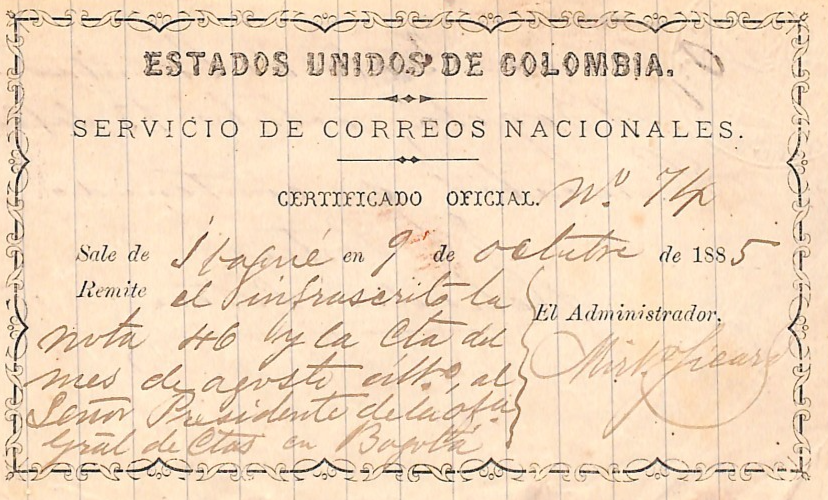 ESTADOS UNIDOS DE COLOMBIA.
SERVICIO DE CORREOS NACIONALES.
CERTIFICADO OFICIAL. Nº 74
Sale de Ibagué en 9 de octubre de 1885
Remite el infrascrito la
nota 46 y la Cta del
mes de agosto ullto, al
Señor Presidente de la ofna
Gral de Ctas en Bogotá
El Administrador,